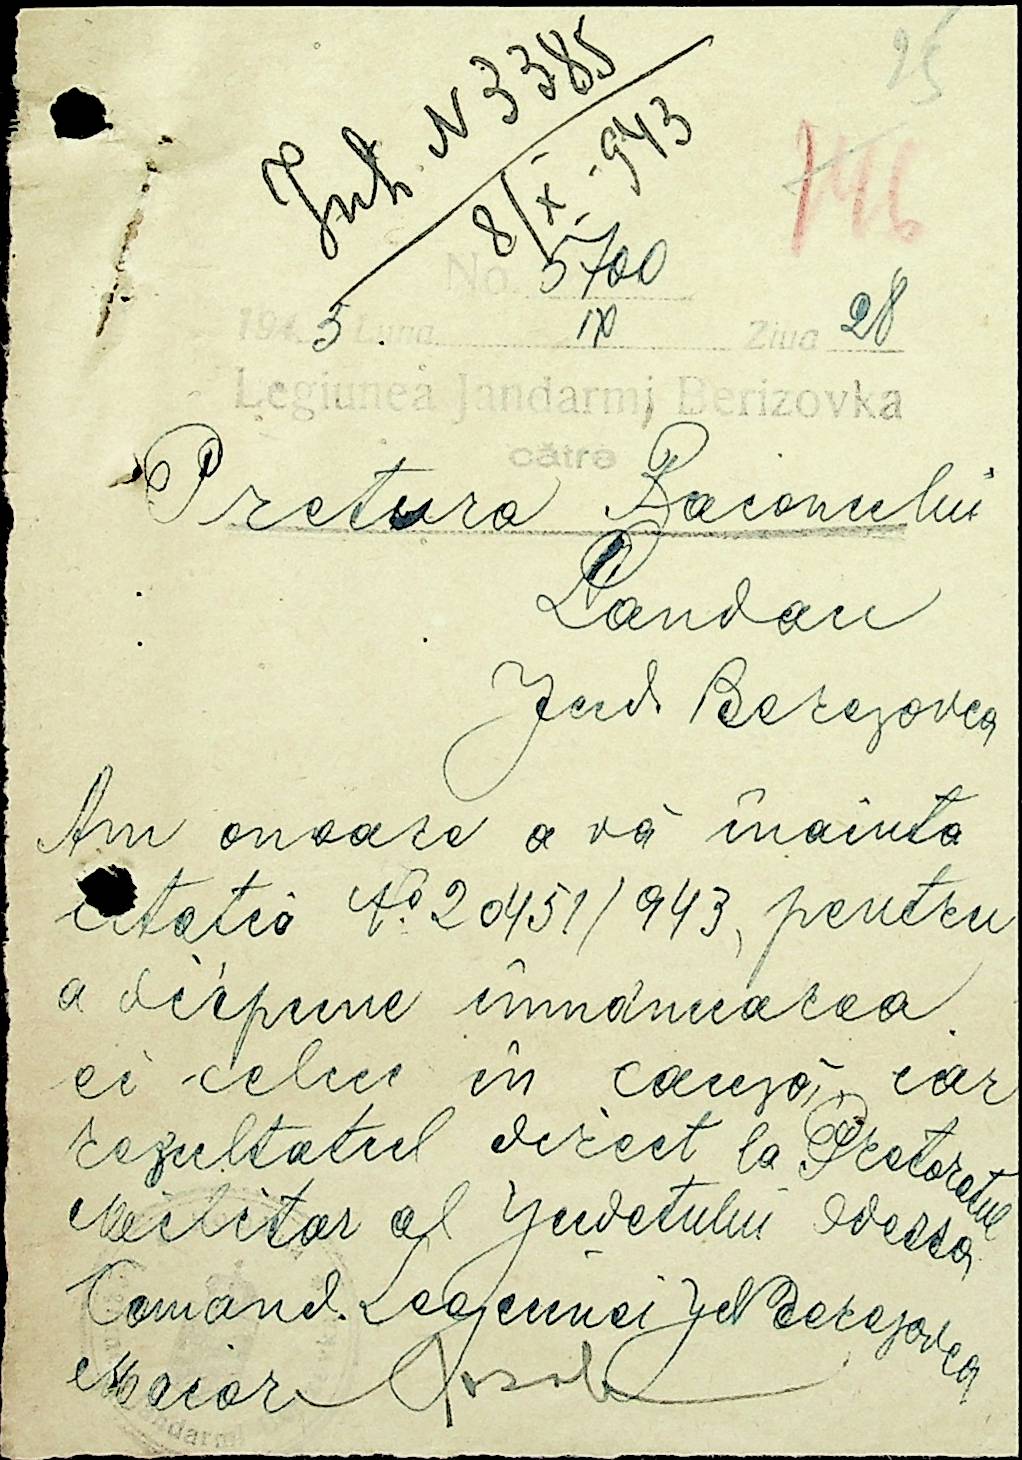 25
746
Inh. N 3385
8/X-943
No. 5700
194 3. Luna IX Ziua 28
Legiunea Jandarmi Berizovka
către
Pretura Raionului
Landau
Jud. Berezovca
Am onoare a vă înainta
citatia No. 20451/943, pentru
a dispune înmânuarea
ei celui în cauză, iar
rezultatul direct la Pretoratul
Militar al Judetului Odessa
Comand. Legiunei Jd Berezovca
Maior